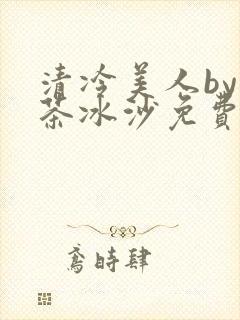 清冷美人by
茶冰沙免費
鸢時肆